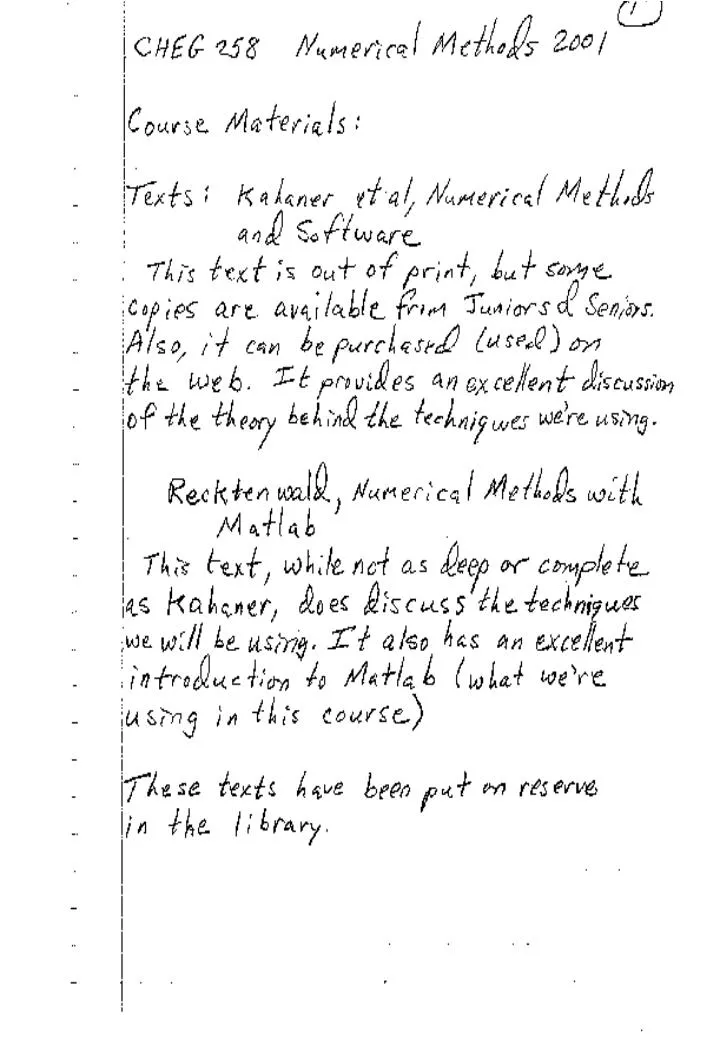 1
CHEG 258 Numerical Methods 2001
Course Materials:
Texts: Kahaner et al, Numerical Methods
and Software
This text is out of print, but some
copies are available from Juniors & Seniors.
Also, it can be purchased (used) on
the web. It provides an excellent discussion
of the theory behind the techniques we're using.
Recktenwald, Numerical Methods with
Matlab
This text, while not as deep or complete
as Kahaner, does discuss the techniques
we will be using. It also has an excellent
introduction to Matlab (what we're
using in this course)
These texts have been put on reserve
in the library.